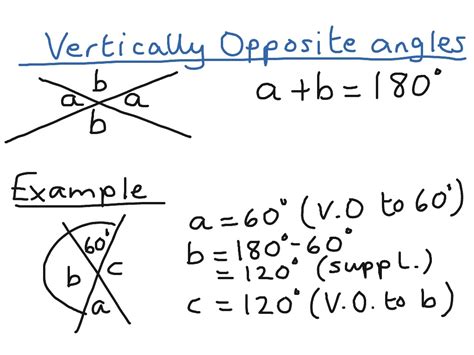 Vertically Opposite angles
b
a a
b
a + b = 180°
Example
60°
b c
a
a = 60° (V.O to 60°)
b = 180° - 60°
= 120° (suppl.)
c = 120° (V.O. to b)